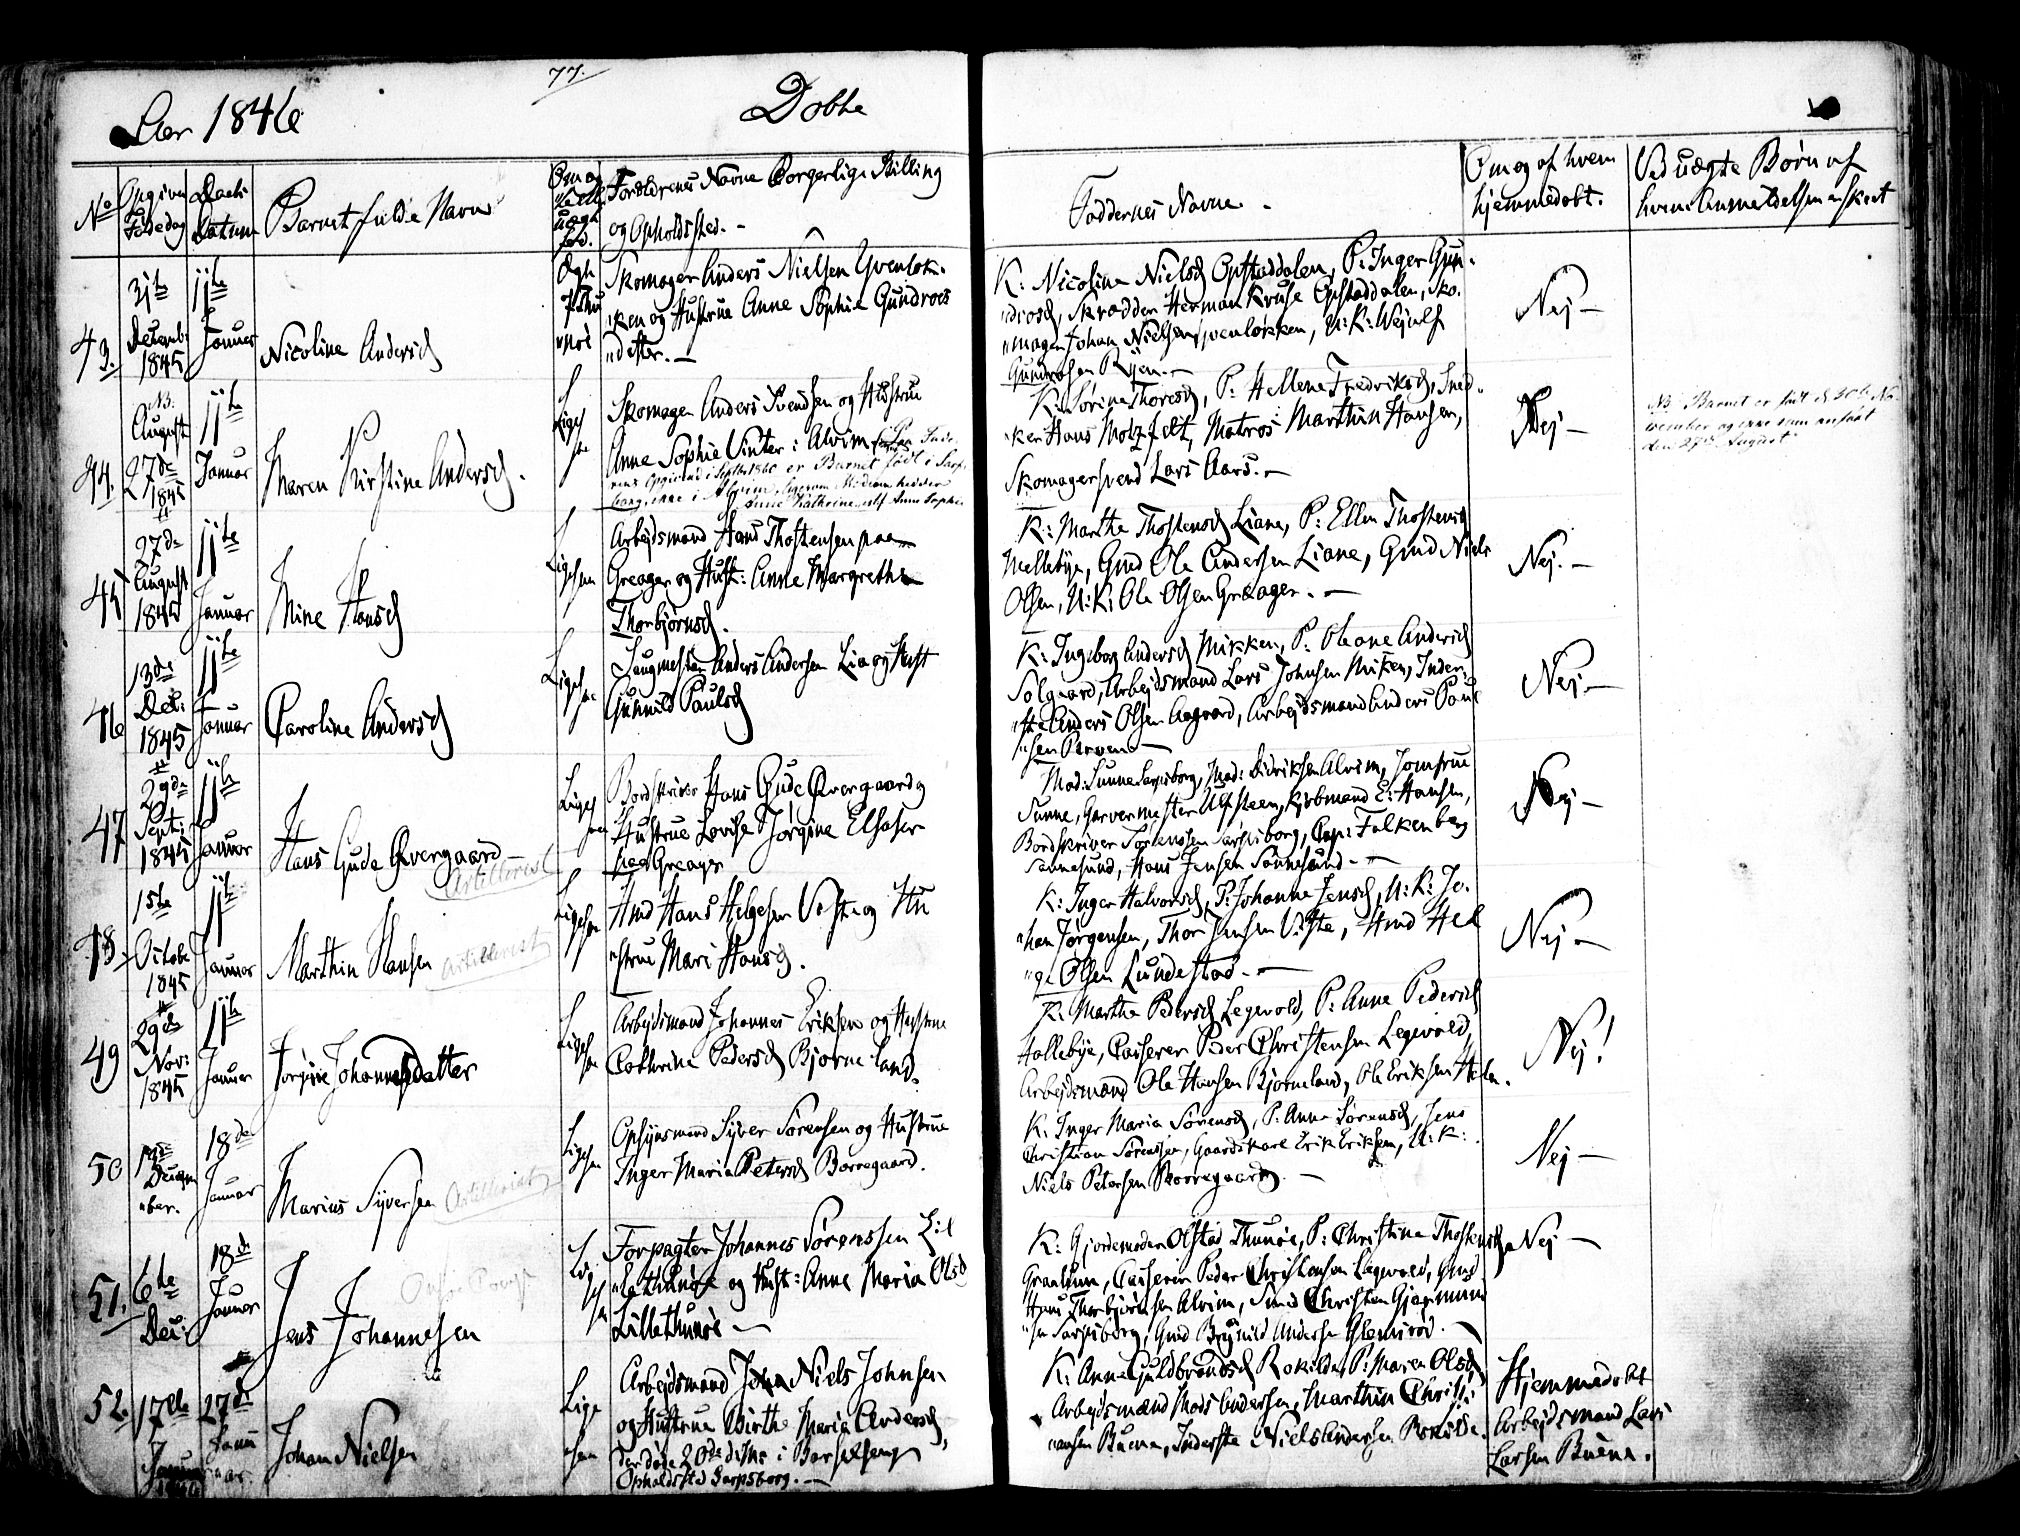 77.
Aar 1846
Døbte
No
Opgiven Fødedag
Daabs Datum
Barnets fulde Navn
Om og
ægte
fød.
Forældrenes Navne Borgerlige Stilling
og Opholdssted. -
Faddernes Navne -
Om og af hvem
hjemmedøbt.
Ved uægte Børn af
hvem Anmeldelsen er skeet
43.
31te
Decemb:
1845
11te
Januar
Nicoline Andersd
Skomager Anders Nielsen Qvenløk-
ken og Hustrue Anne Sophie Gundroes
datter. -
K: Nicoline Nielsd Opstaddalen, P: Inger Gun-
drosd, Skrædder Herman Kruse Opstaddalen, Sko-
mager Johan Nielsen Qvenløkken, U:K: Wejulf
Gundrosen Ryen. -
Nej -
44.
NB.
August
27de
1845
11te
Januar
Maren Kirstine Andersd.
Ligesaa
Skomager Anders Svendsen og Hustrue
Anne Sophie Vinter i Alvim
i Septbr 1860 er Barnet født i Sarps-
borg, ikke i Alvim, ligesom Moderen hedder
Anne Kathrine, ikke Anne Sophie
K: Sørine Thoresd, P: Hellene Fredriksd, Sned-
ker Hans Motzfelt, Matros Marthin Hansen,
Skomagersvend Lars Aars. -
Nej -
NB: Barnet er født d 30te No-
vember og ikke som anført
den 27de August
45
27de
August
1845
11te
Januar
Mine Hansd
Ligesaa
Arbejdsmand Hans Thostensen paa
Greager og Hust: Anne Margrethe
Thorbjørnsd.
K: Marthe Thostensd Liane, P: Ellen Thostensd
Mellebye, Gmd Ole Andersen Liane, Gmd Niels
Olsen, U:K: Ole Olsen Greager. -
Nej. -
46
13de
Dec:
1845
11te
Januar
Caroline Andersd
Ligesaa
Saugmester Anders Andersen Lia og Hust
Gunnild Paulsd
K: Ingeborg Andersd Mikken, P: Oleane Andersd
Solgaard, Arbejdsmand Lars Johnsen Miken, Inder-
ste Anders Olsen Aagaard, Arbejdsmand Anders Paul-
sen
Nej -
47
29de
Sept:
1845
11te
Januar
Hans Gude Overgaard
Artillerist
Ligesaa
Bordskriver Hans Gude Overgaard og
Hustrue Lovise Jørgine Elholser
paa Greager
Mad: Sunne Sarpsborg, Mad: Didriksen Alvim, Jomfrue
Sunne, Garvermester Ulfsteen, Kjøbmand E: Hansen,
Bordskriver Sørensen Sarpsborg, Cap: Falkenberg
Sannesund, Hans Jensen Sannesund. -
Nej -
48
15de
Octobr
1845
11te
Januar
Marthin Hansen
Artillerist
Ligesaa
Hmd Hans Helgesen Viste og Hu
strue Mari Hansd.
K: Inger Halvorsd, P: Johanne Jensd, U:K: Jo-
han Jørgensen, Thor Jensen Viste, Hmd Hel
ge Olsen Lundestad. -
Nej -
49
29de
Nov:
1845
11te
Januar
Jørgine Johannesdatter
Ligesaa
Arbejdsmand Johannes Eriksen og Hustrue
Cathrine Pedersd Bjørneland.
K: Marthe Pedersd Legevold, P: Anne Pedersd
Hallebye, Casserer Peder Christensen Legevold,
Arbejdsmand Ole Hansen Bjørneland, Ole Eriksen
Nej!
50
Decem
ber.
18de
Januar
Marius Syversen
Artillerist
Ligesaa
Opsynsmand Syver Sørensen og Hustrue
Inger Maria Petersd Borregaard.
K: Inger Maria Sørensd, P: Anne Sørensd, Jens
Christian Sørensen, Gaardskarl Erik Eriksen, U:K:
Niels Petersen Borregaard. -
Nej -
51.
6te
Dec:
18de
Januar
Jens Johannesen
Ligesaa
Forpagter Johannes Sørenssen Lil
lethunøe og Hust: Anne Maria Olsd
Lillethunøe -
K: Gjordemoder Olstad Thunøe, P: Christine Thostensd
Graalum, Casserer Peder Christensen Legevold, Gmd
Hans Thorbjørnsen Alvim, Smed Christen Gjermund
sen Sarpsborg, Gmd Brynild Andersen Glemirød. -
Nej -
52.
17de
Januar
27de
Januar
Johan Nielsen
Ligesaa
Arbejdsmand Niels Johnsen
og Hustrue Birthe Maria Andersd,
der døde 20de ds: i Barselseng
Opholdssted Sarpsborg. -
K: Anne Guldbrandsd Rokilde, P: Maren Olsd
Arbejdsmænd Mads Andersen, Marthin Christi-
ansen Buena, Inderste Niels Andersen Rokilde.
Hjemmedøbt
Arbejdsmand Lars
Larsen Buena.